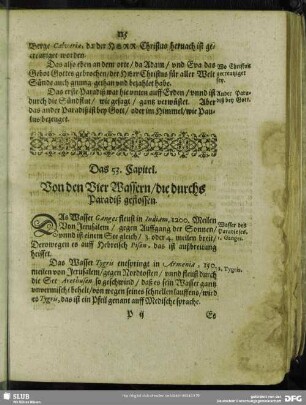 115
Berge Calvariæ, da der HERR Christus hernach ist ge-
creutziget worden.
Das also eben an dem orte / da Adam / und Eva das
Gebot Gottes gebrochen / der HErr Christus für aller Welt
Sünde auch gnung gethan und bezahlet habe.
Wo Christus
gecreutziget
sey.
Das erste Paradiß war hie unten auff Erden / unnd ist
durch die Sündflut / wie gesagt / gantz verwüstet. Aber
das ander Paradiß ist bey Gott / oder im Himmel / wie Pau-
lus bezeuget.
Ander Para-
diß bey Gott.
Das 53. Capitel.
Von den Vier Wassern / die durchs
Paradiß geflossen.
DAs Wasser Ganges fleust in Indiam, 1200. Meilen
Von Jerusalem / gegen Auffgang der Sonnen /
unnd ist einem See gleich / 3. oder 4. meilen breit /
Derowegen es auff Hebreisch Pison, das ist außbreitung
heisset.
Wasser des
Paradieses.
1. Ganges.
Das Wasser Tygris entspringt in Armenia, 150.
meilen von Jerusalem / gegen Nordtosten / unnd fleust durch
die See so geschwind / daß es sein Wasser gantz
unvermischt behelt / von wegen seines schnellen lauffens / wird
es Tygris, das ist ein Pfeil genant auff Medische sprache.
2. Tygris.
P ij
Es
SLUB
DFG